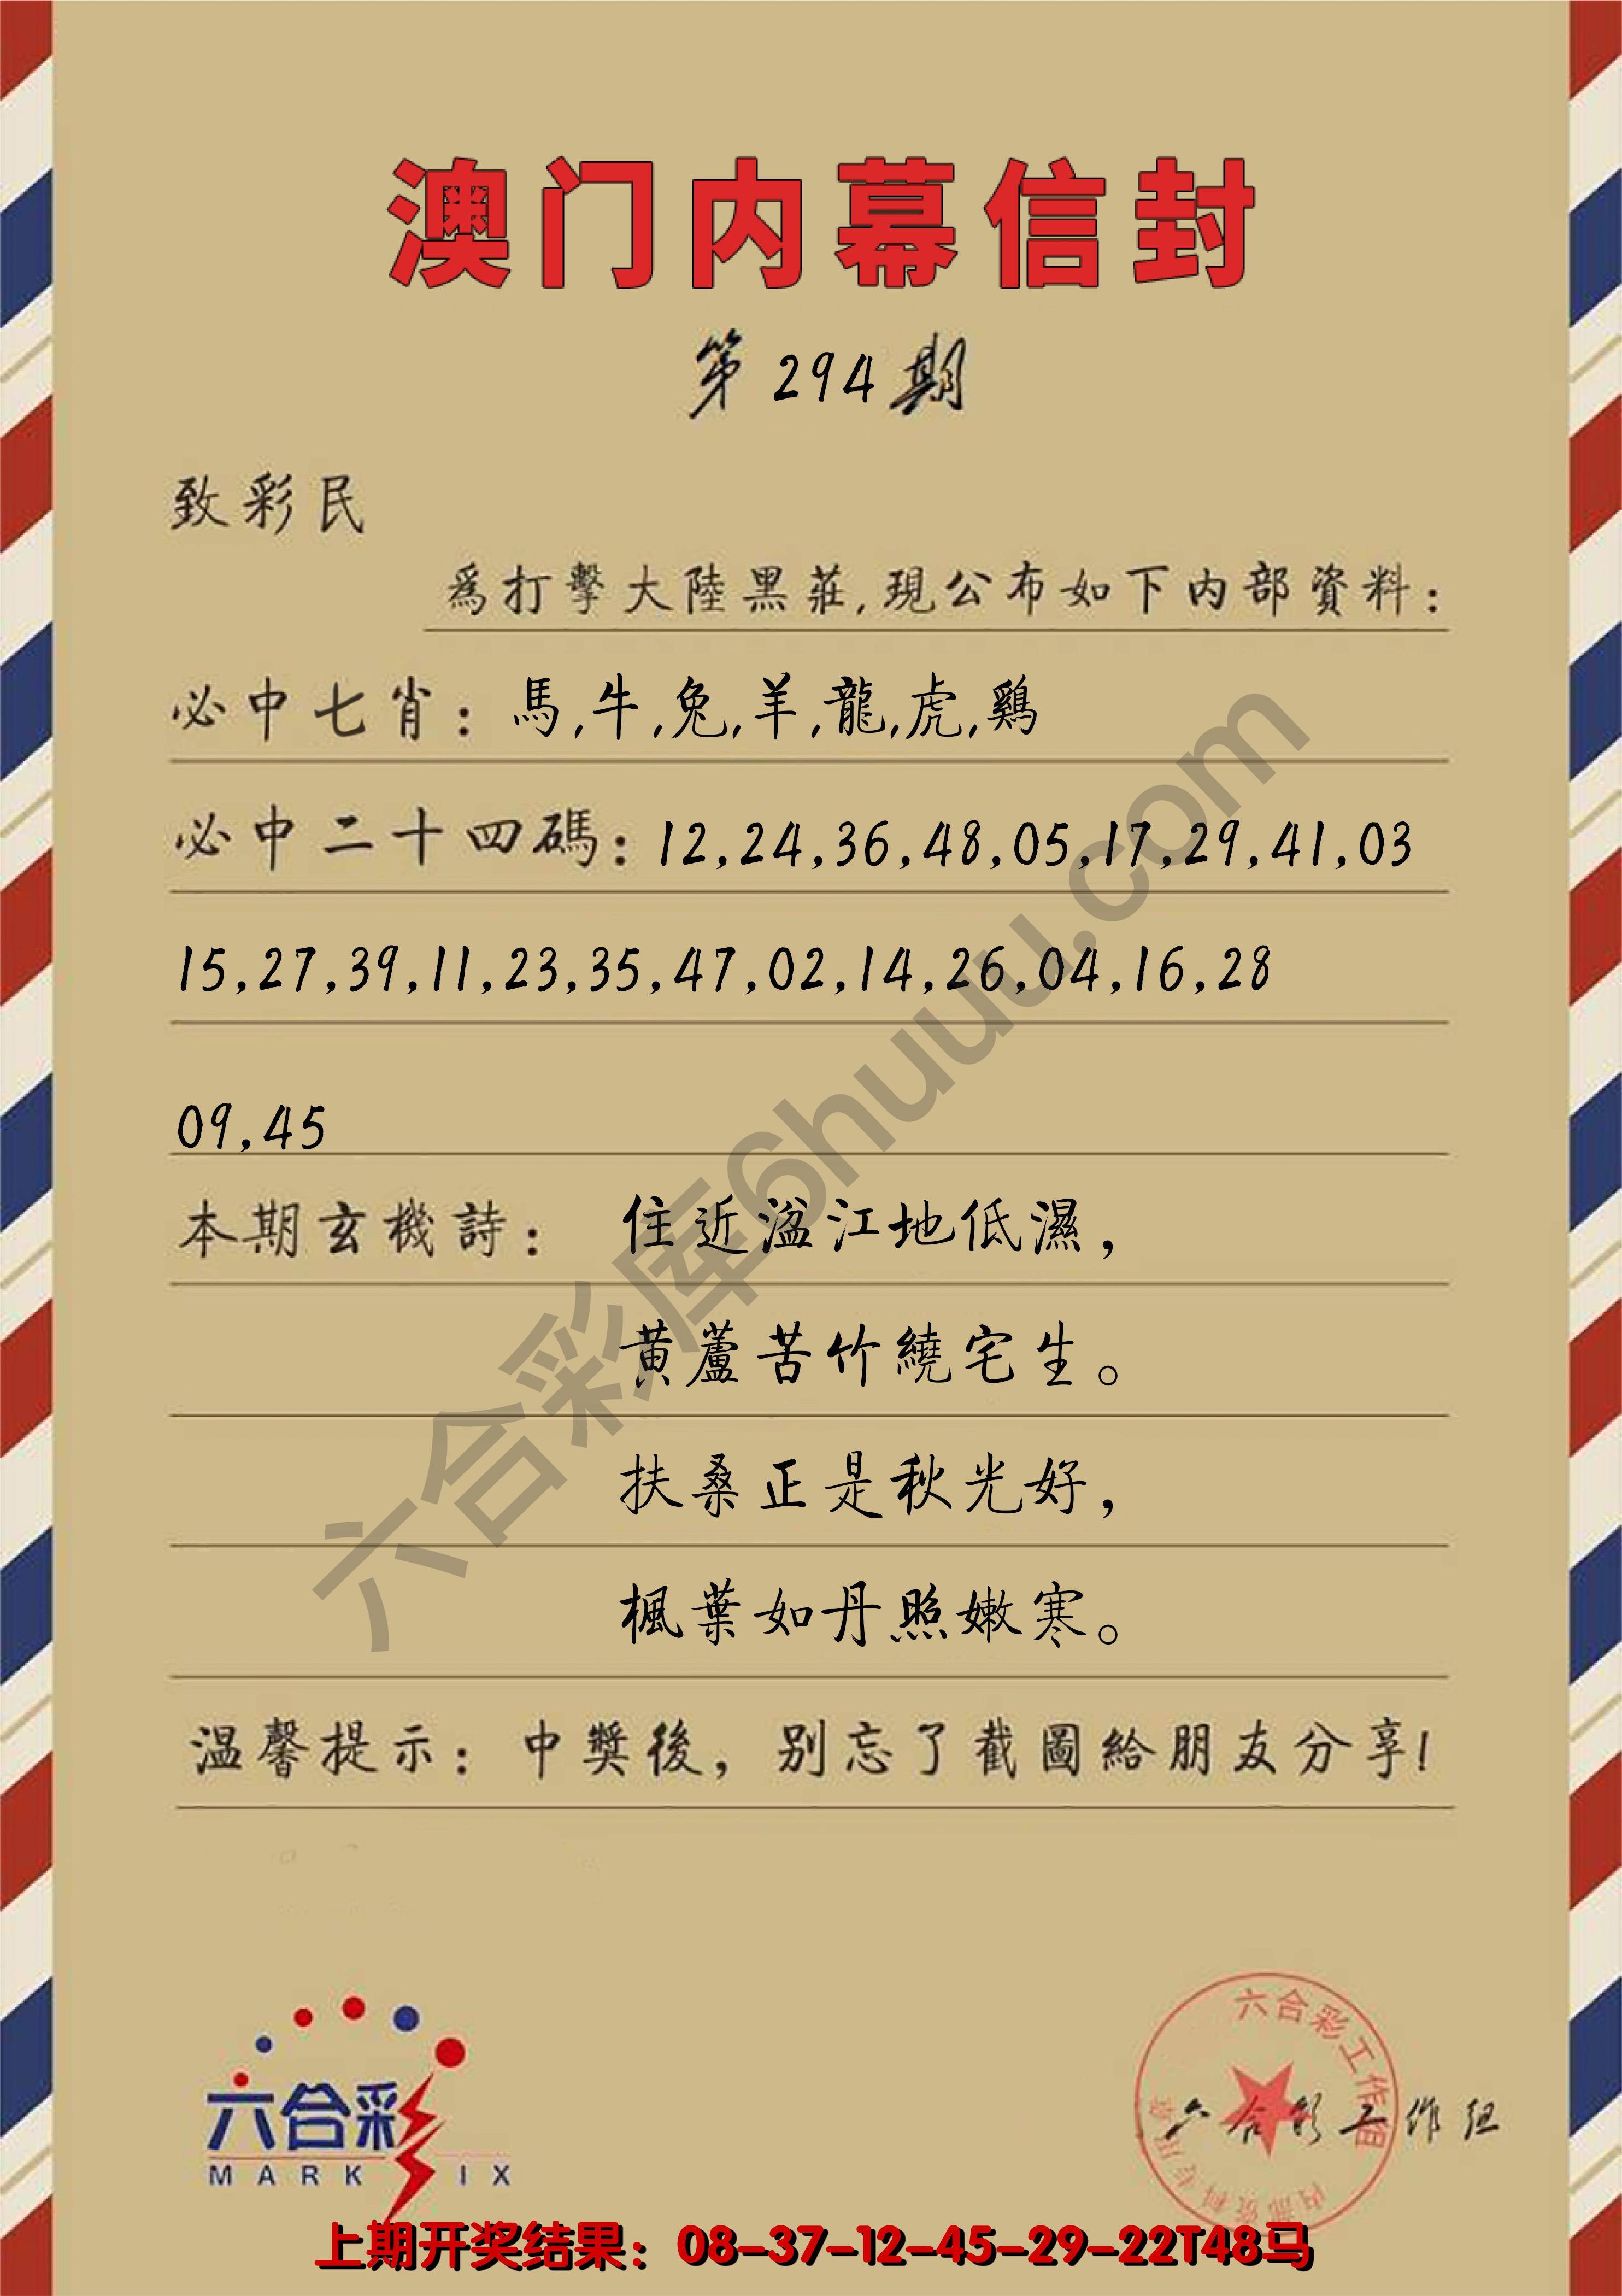 澳门内幕信封
第294期
致彩民
為打擊大陸黑莊,現公布如下内部資料:
必中七肖:馬,牛,兔,羊,龍,虎,鷄
必中二十四碼:12,24,36,48,05,17,29,41,03
15,27,39,11,23,35,47,02,14,26,04,16,28
09,45
本期玄機詩: 住近湓江地低濕,
黄蘆苦竹繞宅生。
扶桑正是秋光好,
楓葉如丹照嫩寒。
温馨提示:中獎後,别忘了截圖給朋友分享!
六合彩库6huuu.com
六合彩
MARK SIX
六合彩工作组
内部资料专用章
六合彩工作组
上期开奖结果:08-37-12-45-29-22T48马